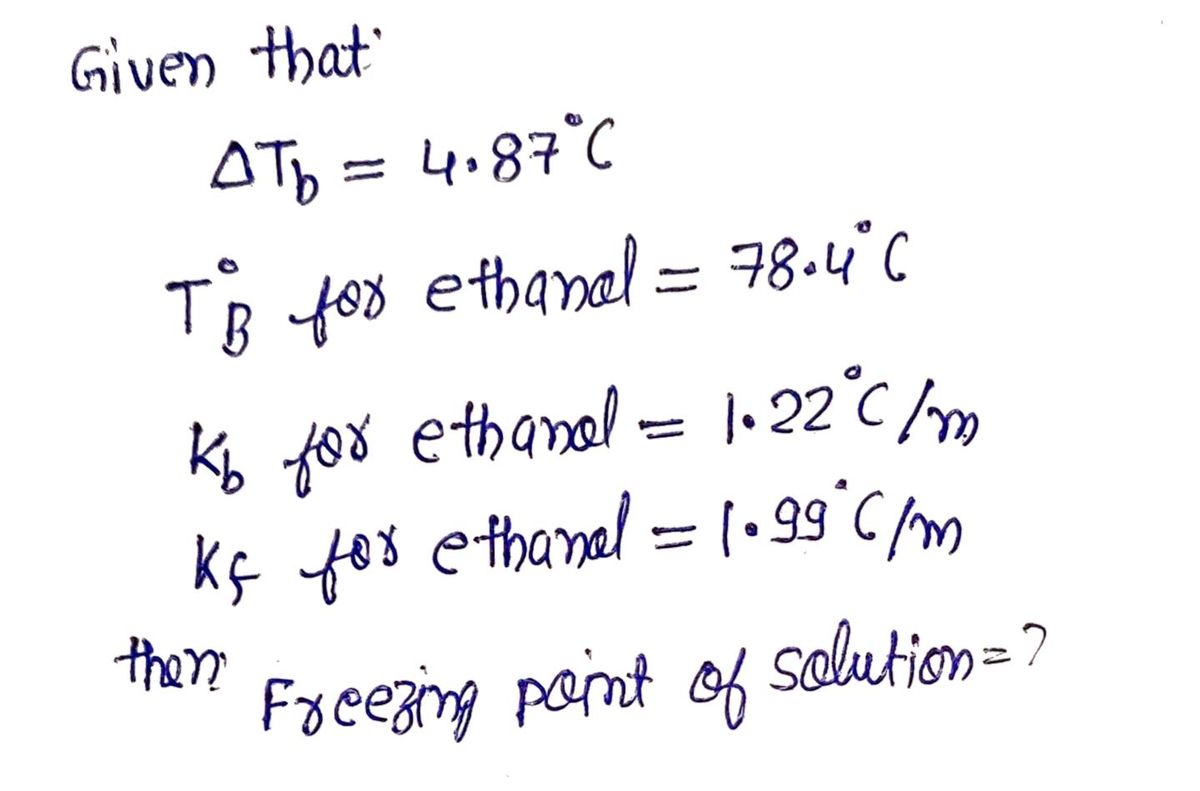 Given that
ΔTb = 4.87°C
T°B for ethanol = 78.4°C
Kb for ethanol = 1.22°C/m
Kf for ethanol = 1.99°C/m
then Freezing point of solution = ?